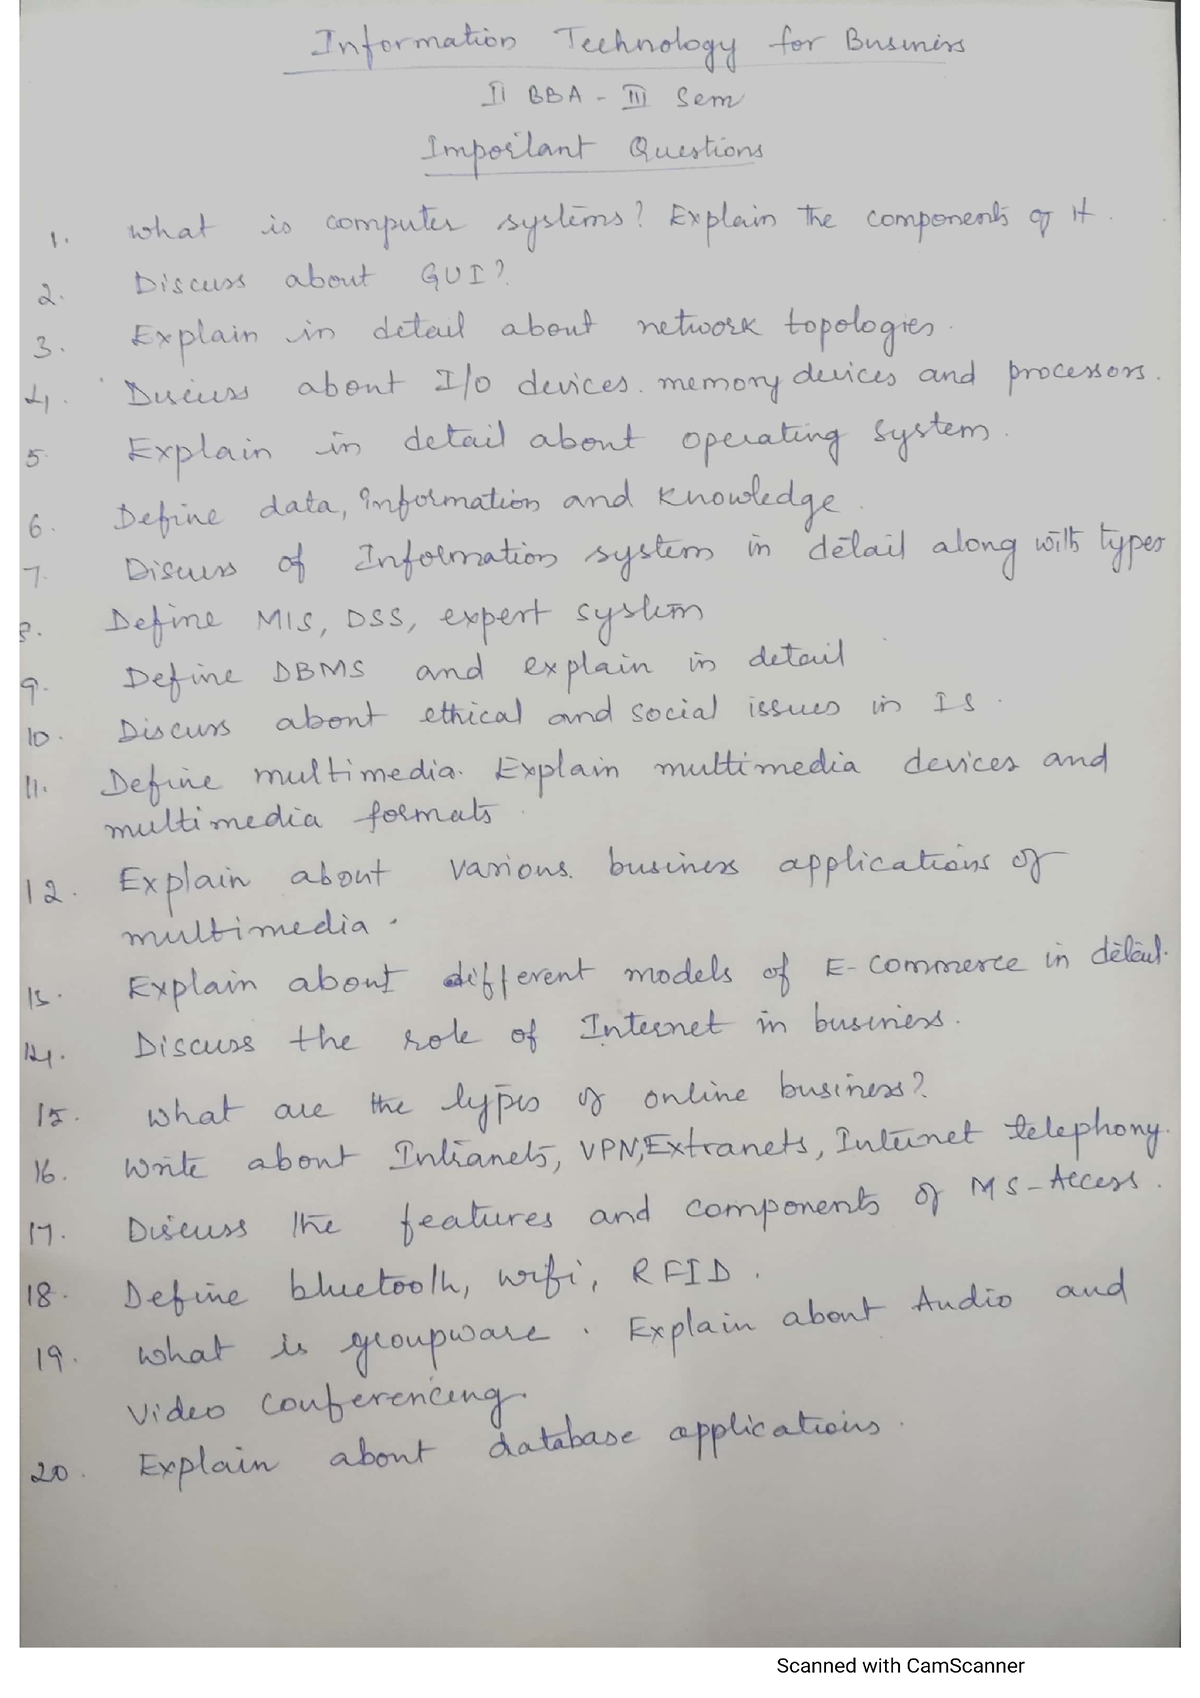 Information Technology for Business
II BBA - III Sem
Important Questions
1. what is computer systems? Explain the components of it.
2. Discuss about GUI?
3. Explain in detail about network topologies.
4. Discuss about I/O devices. memory devices and processors.
5. Explain in detail about operating system.
6. Define data, Information and knowledge.
7. Discuss of Information system in detail along with types
8. Define MIS, DSS, expert system
9. Define DBMS and explain in detail
10. Discuss about ethical and social issues in IS.
11. Define multimedia. Explain multimedia devices and
multimedia formats.
12. Explain about various. business applications of
multimedia.
13. Explain about different models of E-commerce in detail.
14. Discuss the role of Internet in business.
15. what are the types of online business?
16. Write about Intranets, VPN, Extranets, Internet telephony.
17. Discuss the features and components of MS-Access.
18. Define bluetooth, wifi, RFID.
19. what is groupware. Explain about Audio and
video conferencing.
20. Explain about database applications.
Scanned with CamScanner